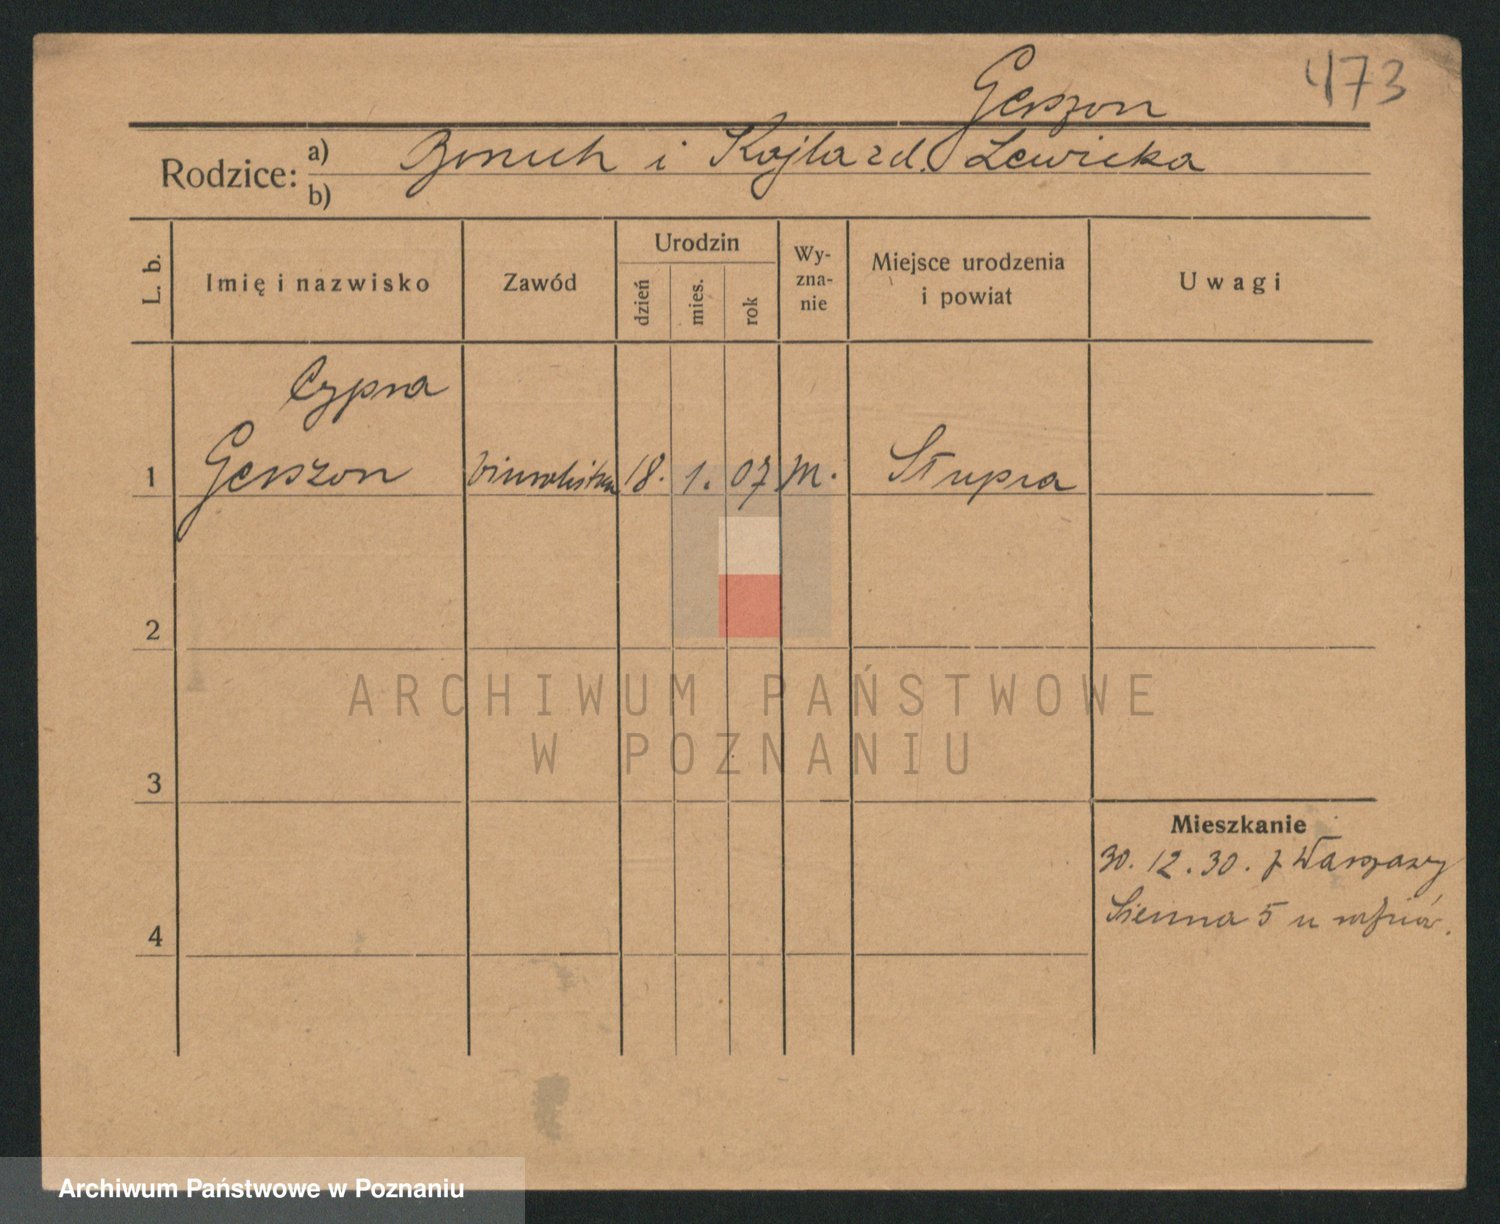 473
Gerszon
Rodzice: a) Boruch i Kajla z d. Lewicka
b)
L. b.
Imię i nazwisko
Zawód
Urodzin
dzień
mies.
rok
Wy-
zna-
nie
Miejsce urodzenia
i powiat
Uwagi
Cypra
1 Gerszon biuralistka 18. 1. 07 m. Słupca
2
3
4
Mieszkanie
30. 12. 30. z Warszawy
Sienna 5 u
ARCHIWUM PAŃSTWOWE
W POZNANIU
Archiwum Państwowe w Poznaniu